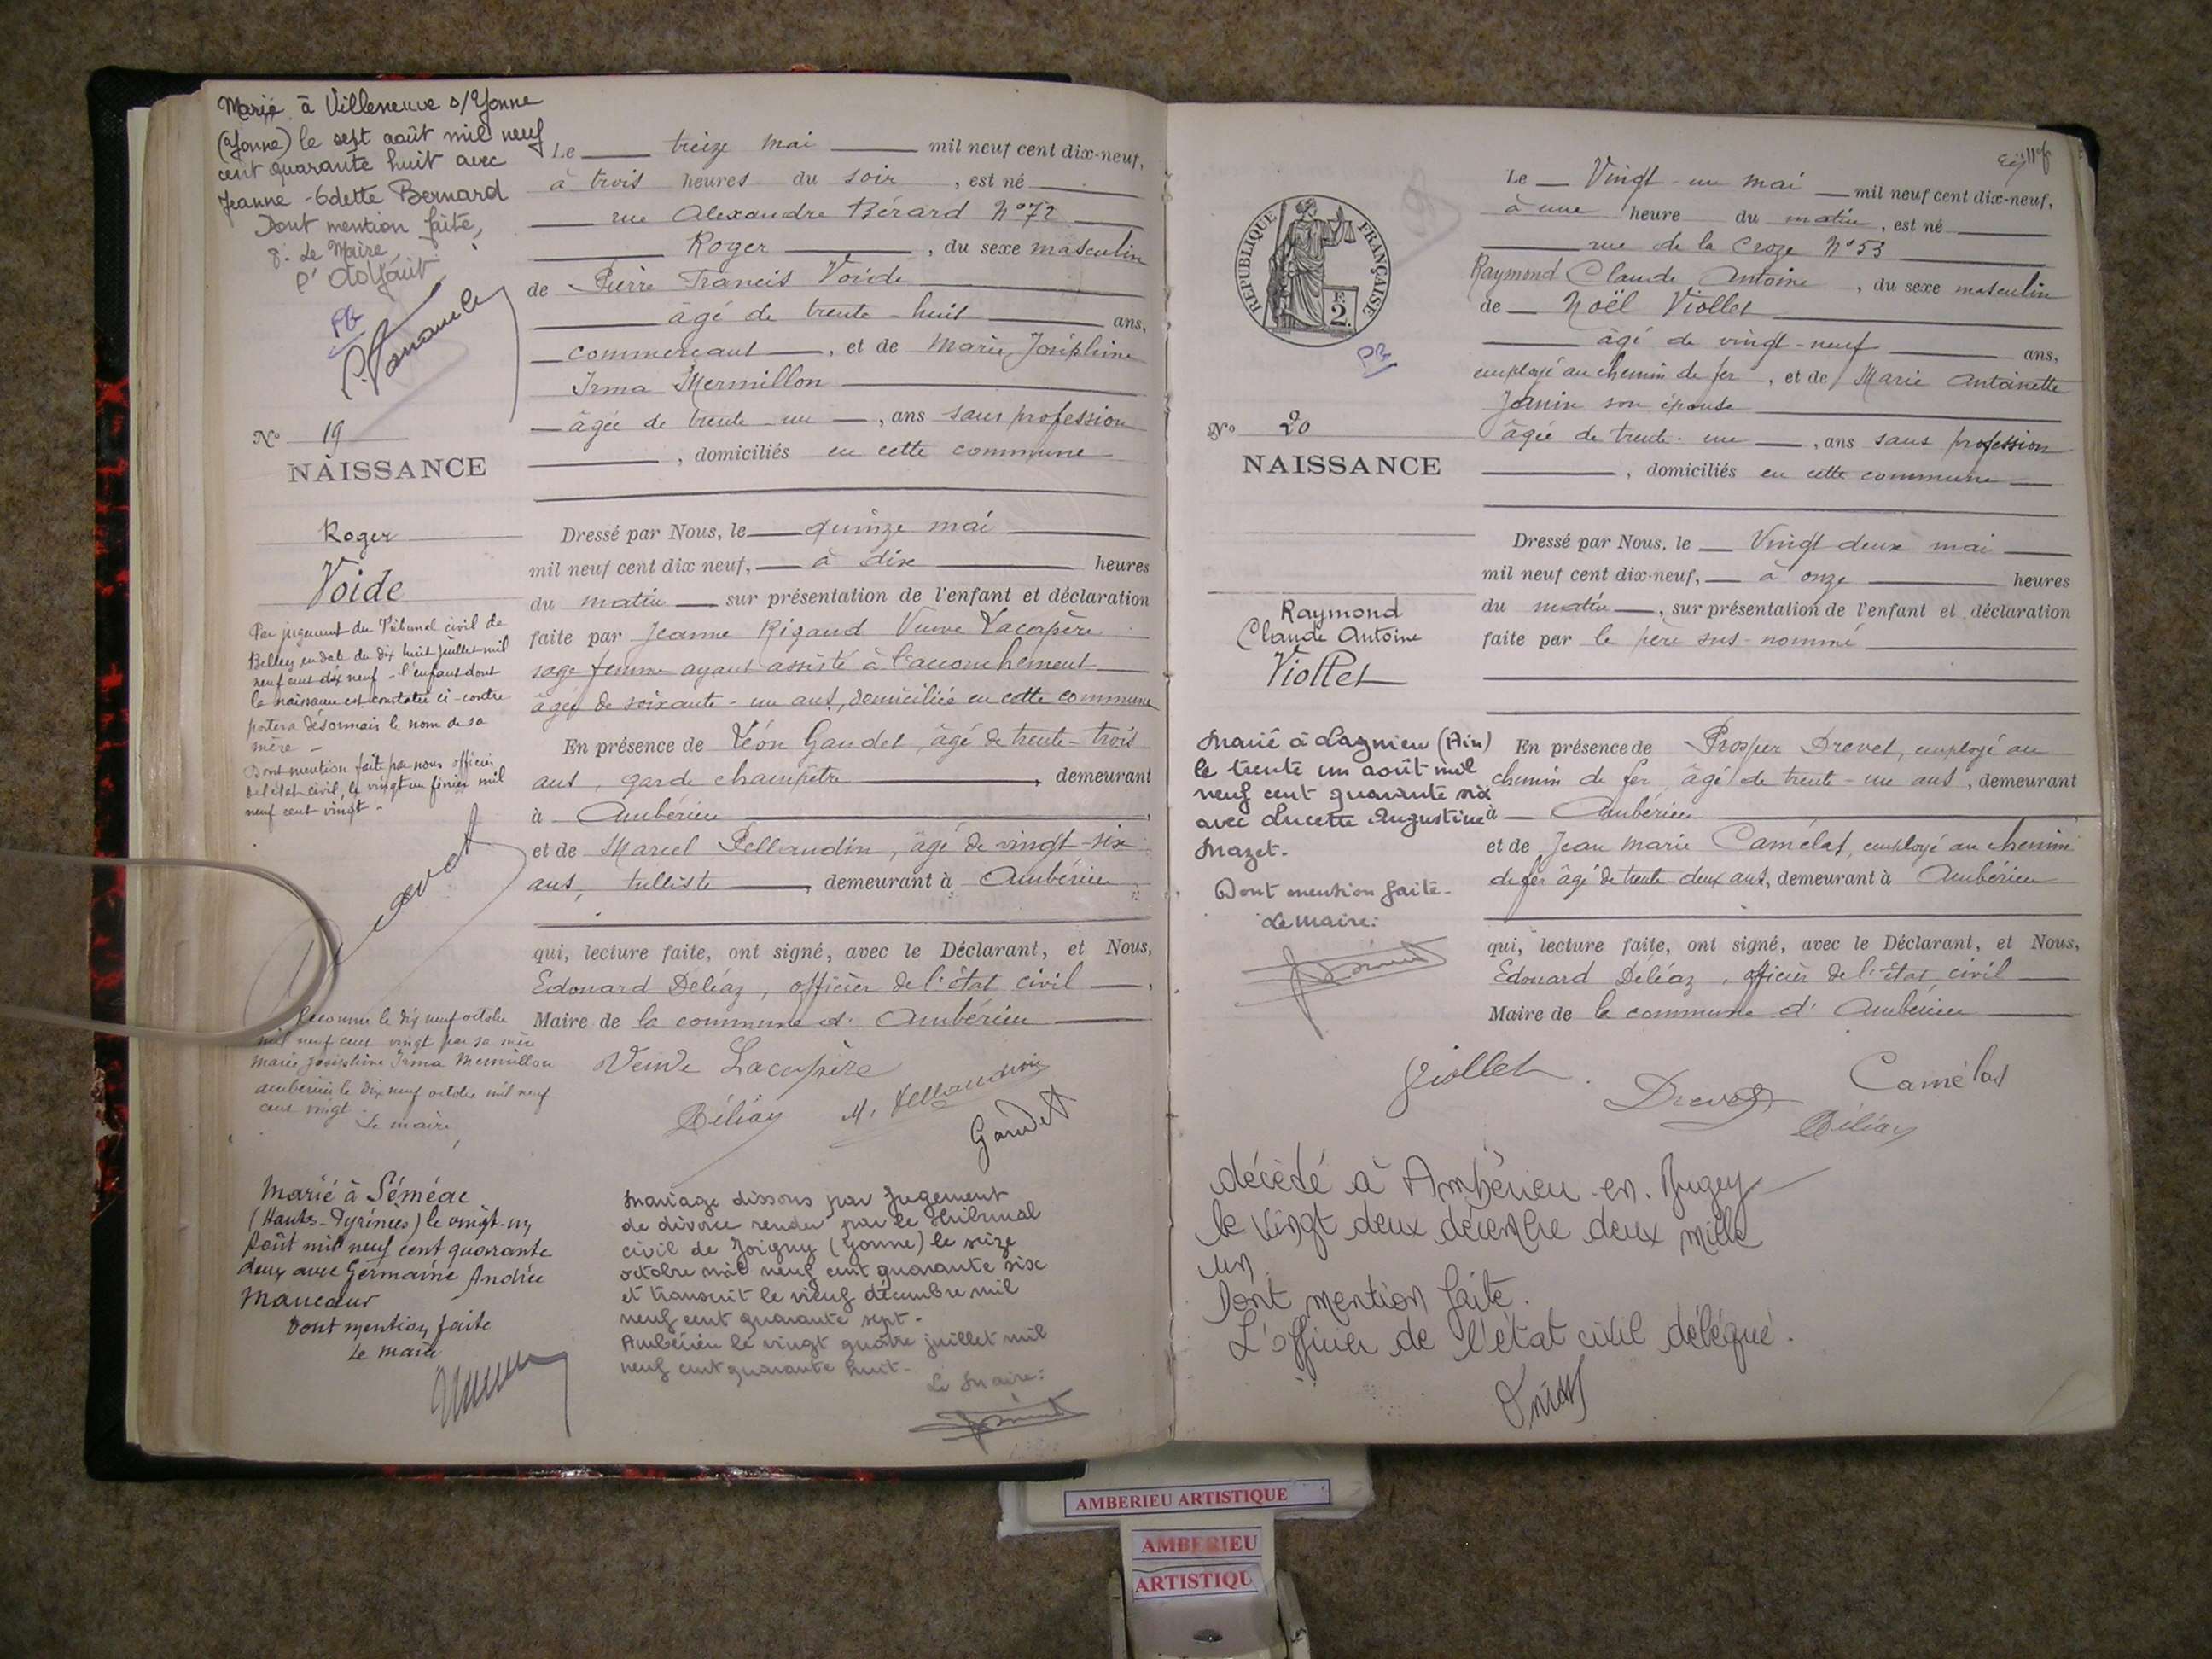 Marié à Villeneuve s/Yonne
(Yonne) le sept août mil neuf
cent quarante huit avec
Jeanne-Odette Bernard
Dont mention faite,
Le Maire
l'Adjoint
PB
No 19
NAISSANCE
Roger
Voide
Par jugement du Tribunal civil de
Belley en date du dix huit juillet mil
neuf cent dix neuf - l'enfant dont
la naissance est constatée ci-contre
portera désormais le nom de sa
mère -
Dont mention fait par nous officier
de l'état civil, le vingt un février mil
neuf cent vingt -
Reconnu le dix neuf octobre
mil neuf cent vingt par sa mère
Marie Joséphine Irma Mermillon
Ambérieu le dix neuf octobre mil neuf
cent vingt
Le maire,
Marié à Séméac
(Hautes-Pyrénées) le vingt-un
Août mil neuf cent quarante
deux avec Germaine Andrée
Dont mention faite
Le maire
Le treize mai mil neuf cent dix-neuf,
à trois heures du soir, est né
rue Alexandre Bérard N° 72
Roger, du sexe masculin
de Pierre Francis Voide
âgé de trente-huit ans,
commerçant, et de Marie Joséphine
Irma Mermillon
âgée de trente-un, ans sans profession
, domiciliés en cette commune
Dressé par Nous, le quinze mai
mil neuf cent dix neuf, à dix heures
du matin sur présentation de l'enfant et déclaration
faite par Jeanne Rigaud Veuve Lacapère
sage femme ayant assisté à l'accouchement
âgée de soixante-un ans, domiciliée en cette commune
En présence de Léon Gaudet, âgé de trente-trois
ans, garde champêtre, demeurant
à Ambérieu,
et de Marcel Pellaudin, âgé de vingt-six
ans, tulliste, demeurant à Ambérieu
qui, lecture faite, ont signé, avec le Déclarant, et Nous,
Edouard Déléaz, officier de l'état civil,
Maire de la commune d'Ambérieu
Veuve Lacapère
Déléaz M. Pellaudin
Gaudet
Mariage dissous par Jugement
de divorce rendu par le Tribunal
civil de Joigny (Yonne) le seize
octobre mil neuf cent quarante six
et transcrit le neuf décembre mil
neuf cent quarante sept.
Ambérieu le vingt quatre juillet mil
neuf cent quarante huit.
Le Maire:
PB
REPUBLIQUE FRANÇAISE
E
2.
No 20
NAISSANCE
Raymond
Claude Antoine
Viollet
Marié à Lagnieu (Ain)
le trente un août mil
neuf cent quarante six
avec Lucette Augustine
Mazet.
Dont mention faite.
Le Maire:
Le Vingt-un mai mil neuf cent dix-neuf,
à une heure du matin, est né
rue de la Croze N° 53
Raymond Claude Antoine, du sexe masculin
de Noël Viollet
âgé de vingt-neuf ans,
employé au chemin de fer, et de Marie Antoinette
Janin son épouse
âgée de trente-un, ans sans profession
, domiciliés en cette commune
Dressé par Nous, le Vingt deux mai
mil neuf cent dix-neuf, à onze heures
du matin, sur présentation de l'enfant et déclaration
faite par le père sus-nommé
En présence de Prosper Drevet, employé au
chemin de fer, âgé de trente-un ans, demeurant
à Ambérieu
et de Jean Marie Camélat, employé au chemin
de fer âgé de trente-deux ans, demeurant à Ambérieu
qui, lecture faite, ont signé, avec le Déclarant, et Nous,
Edouard Déléaz, officier de l'état civil
Maire de la commune d'Ambérieu
Viollet Drevet Camélat
Déléaz
décédé à Ambérieu-en-Bugey
le vingt deux décembre deux mille
un.
Dont mention faite.
L'officier de l'état civil délégué.
AMBERIEU ARTISTIQUE
AMBERIEU
ARTISTIQU